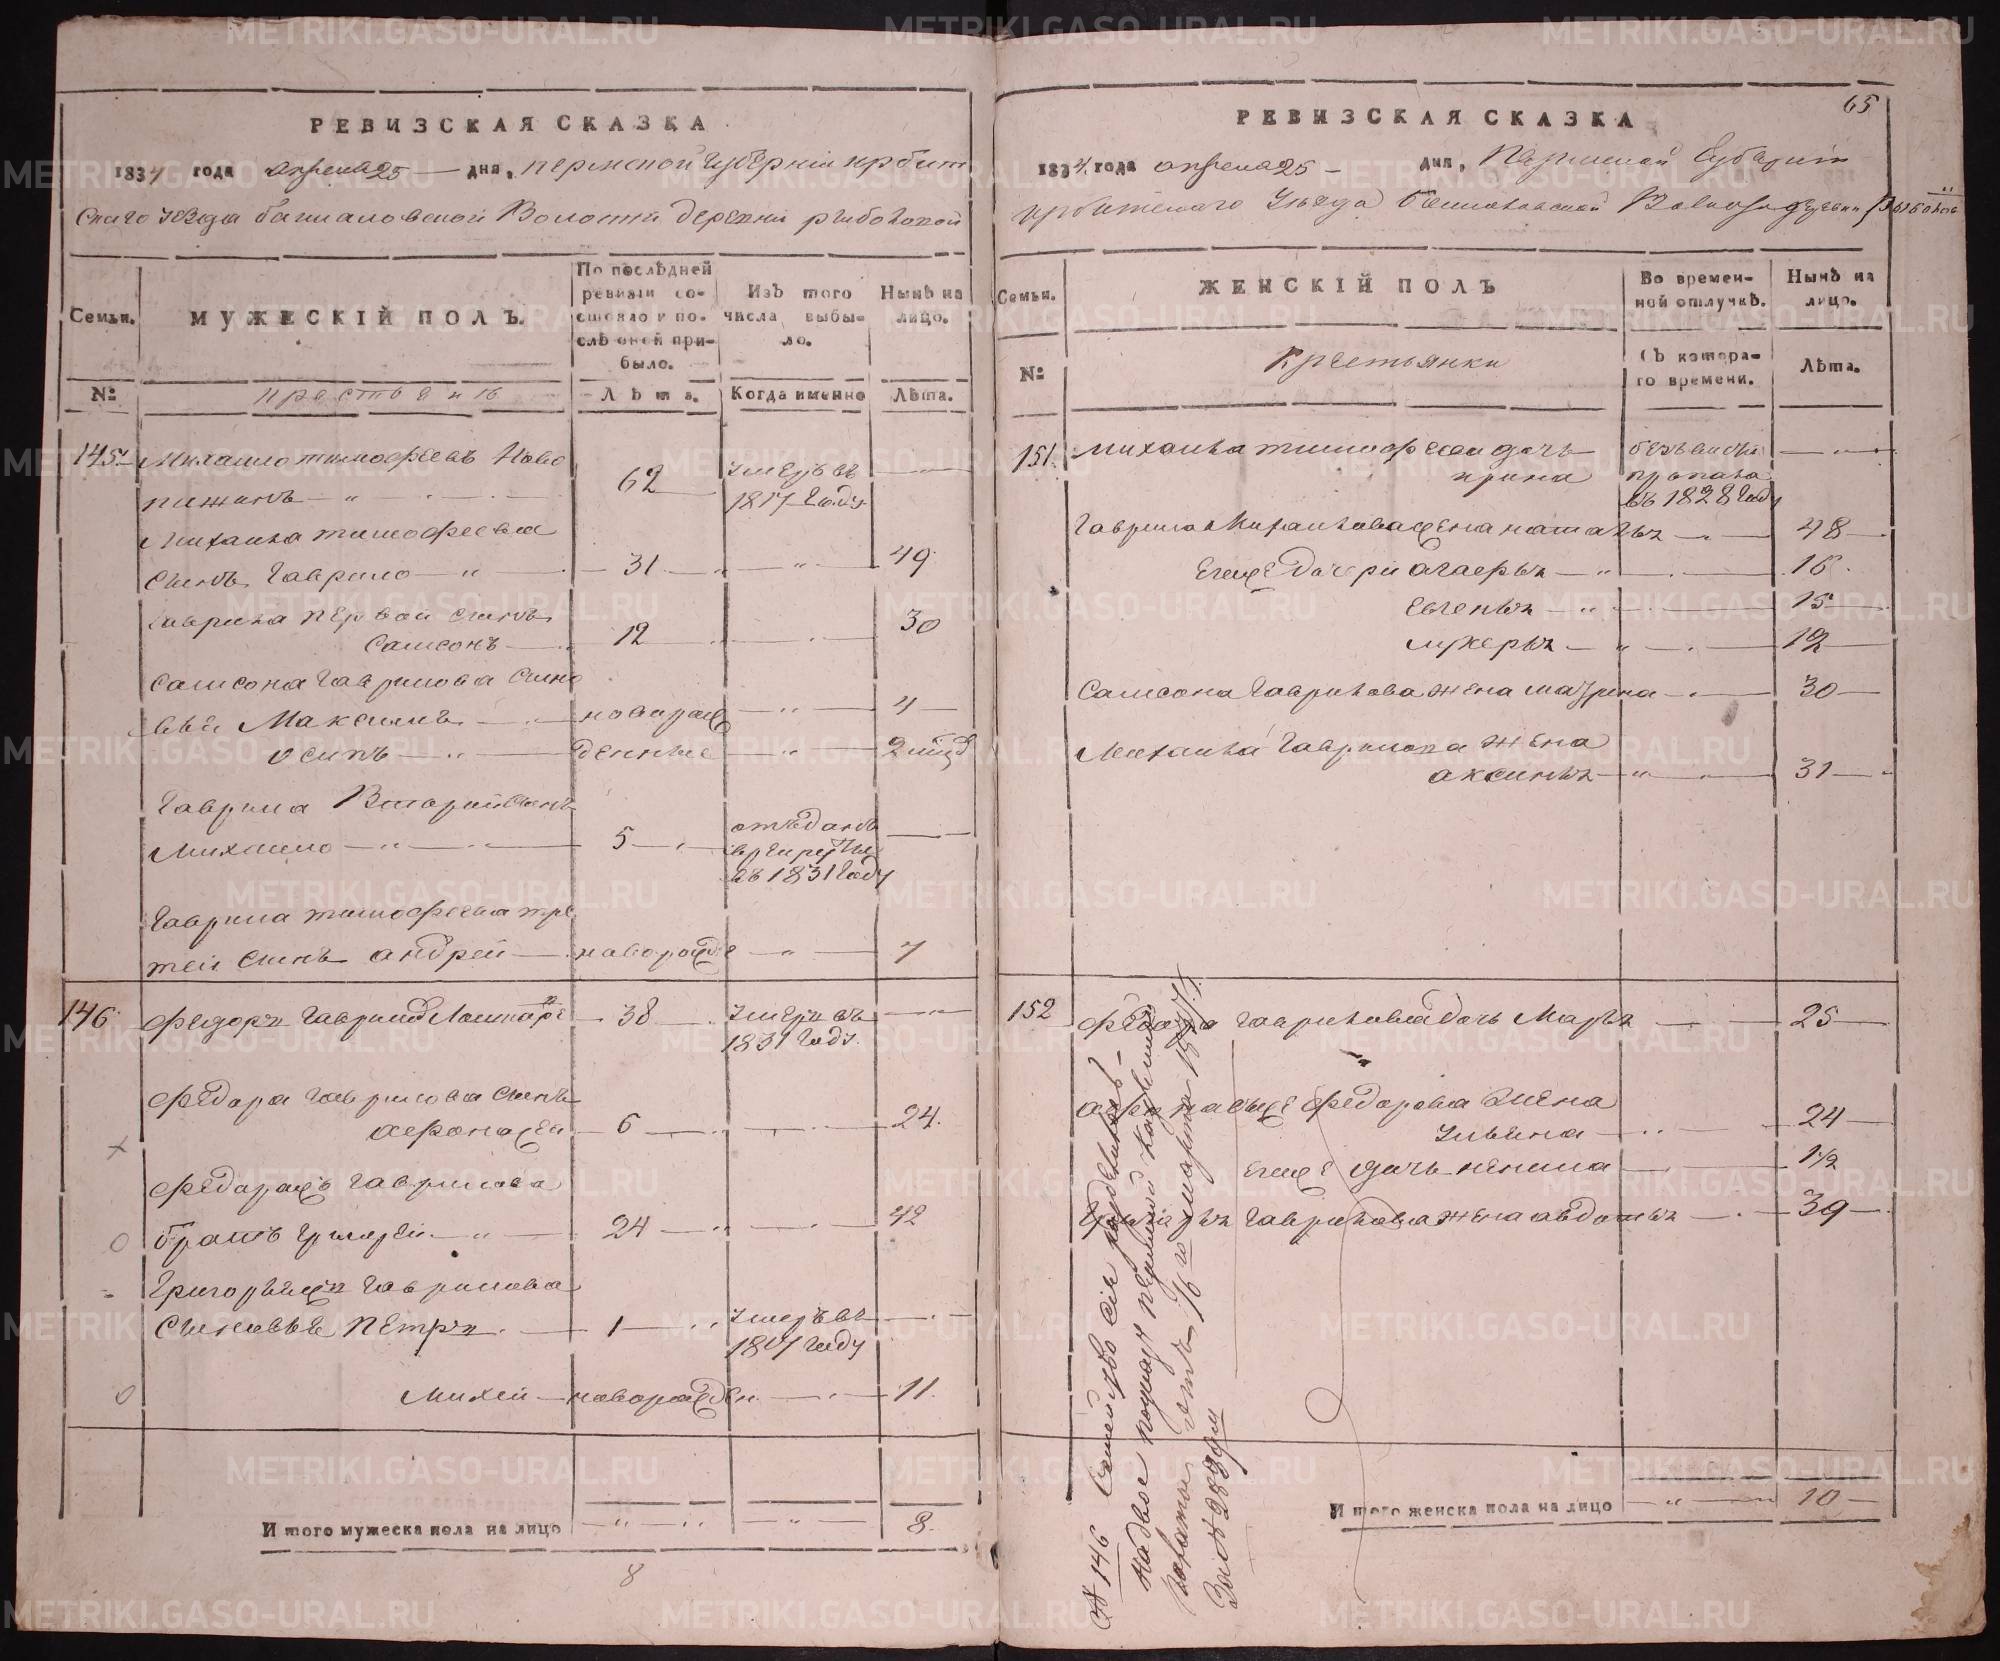 РЕВИЗСКАЯ СКАЗКА
1834 года апреля 25 дня, пермской губерніи ирбит
скаго уезда баишаловской Волости деревни рыболовой
Семьи.
МУЖЕСКІЙ ПОЛЪ
По послѣдней ревизіи состояло и послѣ оной прибыло.
Изъ того числа выбыло.
Нынѣ на лицо.
№
крестьенъ
Лѣта.
Когда именно
Лѣта.
145 Михаило тимофеевъ Ново
62 умеръ въ
1817 году
Михаила тимофеева
сынъ Гаврило 31 49
Гаврила первой сынъ
Самсонъ 12 30
Самсона Гаврилова сыно
вьи Максимъ новарож 4
осипъ денные 2
Гаврила Второй сынъ
Михаило 5 отъданъ
въ рекруты
въ 1831 году
Гаврила тимофеева тре
тей сынъ андрей наворожде 7
146 Федоръ Гаврилов 38 умеръ въ
1831 году
Федора Гаврилова сынъ
афонасеи 6 24
Федоражъ Гаврилова
братъ григореи 24 42
Григорьяжъ Гаврилова
сыновье петръ 1 умеръ въ
1817 году
Михей наворожден 11
Итого мужеска пола на лицо 8
8
65
РЕВИЗСКАЯ СКАЗКА
1834 года апреля 25 дня, Пермской Губерніи
ирбитского Уезда Волости деревни Рыболов
Семьи.
ЖЕНСКІЙ ПОЛЪ
Во временной отлучкѣ.
Нынѣ на лицо.
№
Крестьянки
Съ котораго времени.
Лѣта.
151 Михаила тимофеева дочь безъвисти
ирина пропала
въ 1828 году
Гаврила Михаилова жена наталья 48
Егоже дочери агаерья 16
Евгенья 15
лукерья 12
Самсона Гаврилова жена матрина 30
Михаила Гаврилова жена
аксинья 31
152 Федора Гаврилова дочь Марья 25
Федорова жена
Ульяна 24
Егоже дочь ненила 1/2
Гаврилова жена авдотья 39
Итого женска пола на лицо 10
№ 146 Семейство сіе разделилось
надвое
16 го марта
За № 2889 м
METRIKI.GASO-URAL.RU